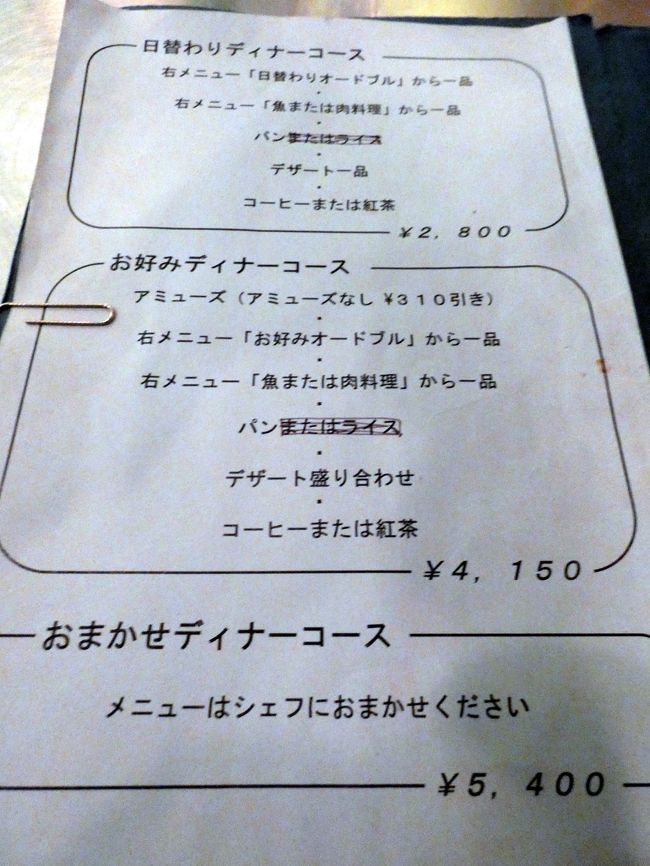 日替わりディナーコース
右メニュー「日替わりオードブル」から一品
・
右メニュー「魚または肉料理」から一品
・
パンまたはライス
・
デザート一品
・
コーヒーまたは紅茶
¥2,800
お好みディナーコース
アミューズ（アミューズなし ¥310引き）
・
右メニュー「お好みオードブル」から一品
・
右メニュー「魚または肉料理」から一品
・
パンまたはライス
・
デザート盛り合わせ
・
コーヒーまたは紅茶
¥4,150
おまかせディナーコース
メニューはシェフにおまかせください
¥5,400